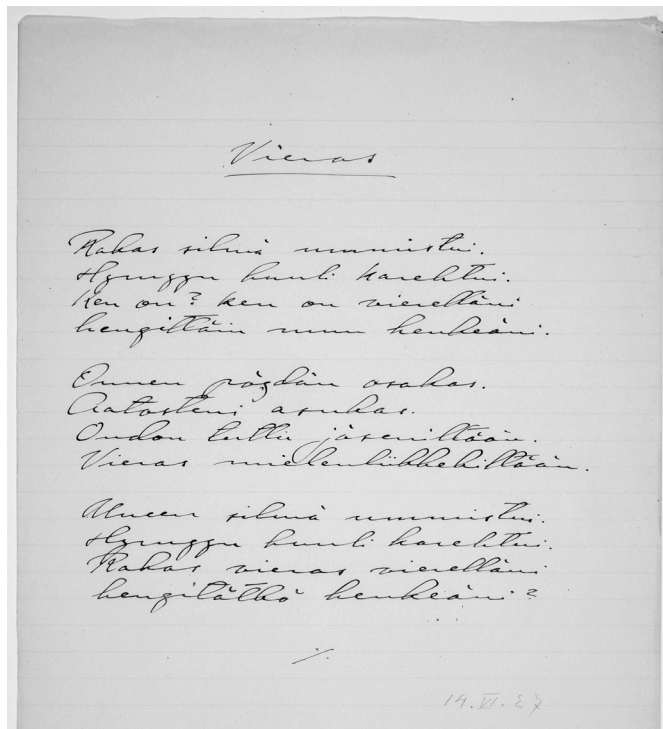 Vieras
Rakas silmä ummistui.
Hymyyn huuli karehtui.
Ken on? ken on vierelläni
hengittäin mun henkeäni.
Onnen pöydän osakas.
Aatosteni asukas.
Oudon tuttu jäseniltään.
Vieras mielenliikkehiltään.
Uneen silmä ummistui.
Hymyyn huuli karehtui.
Rakas vieras vierelläni
hengitätkö henkeäni?
./.
14.VI.27